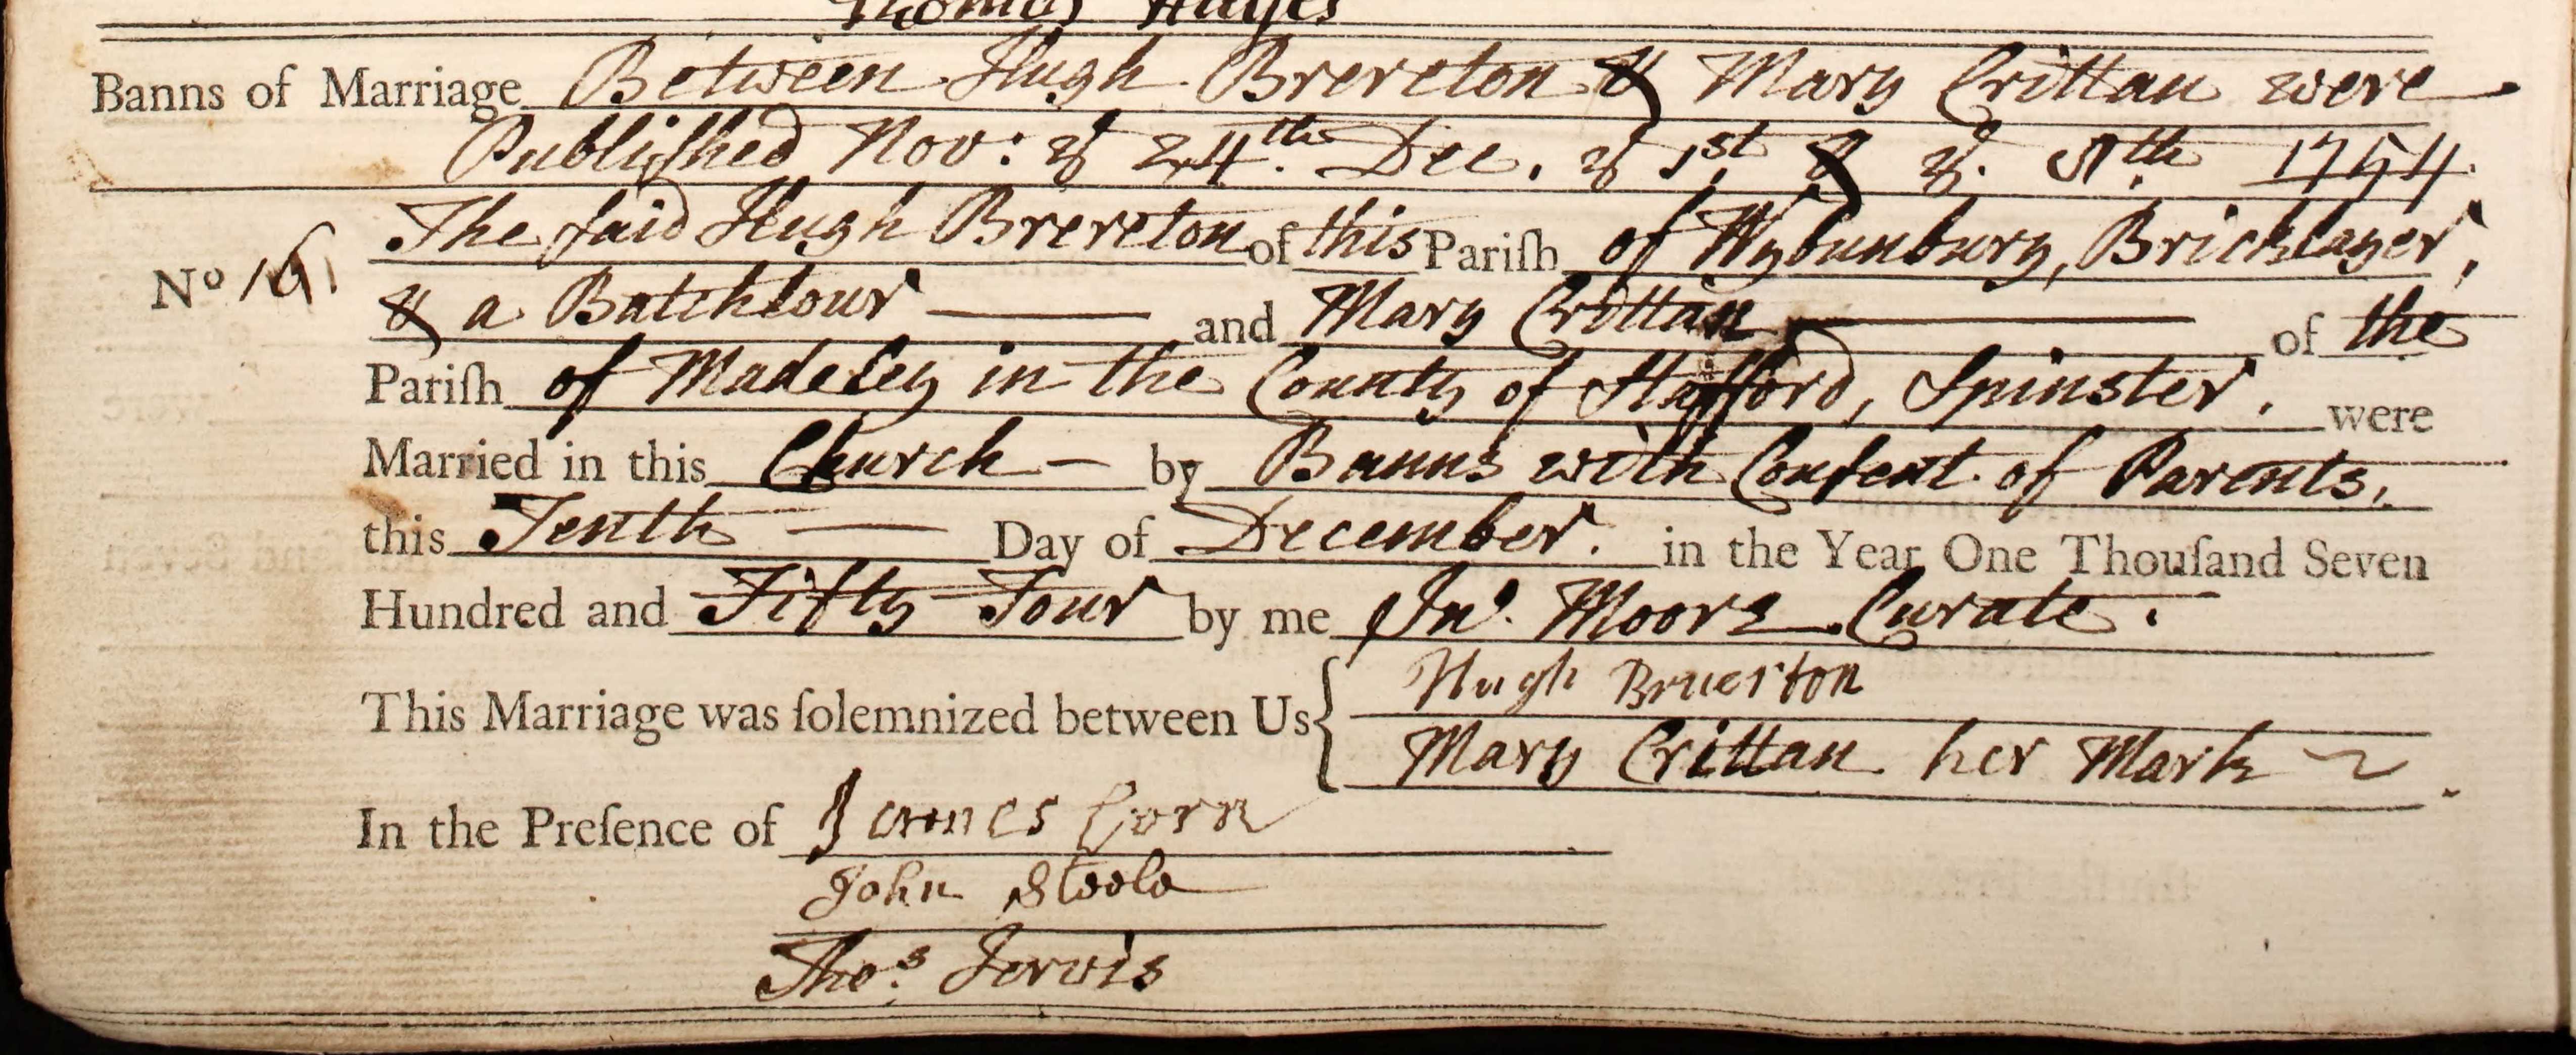 Thomas Hayes
Banns of Marriage Between Hugh Brereton & Mary Crittan were
Publiſhed Nov: ye 24th. Dec. ye 1st, & ye. 8th 1754.
The ſaid Hugh Brereton of this Pariſh of Wybunbury, Bricklayer,
No 161 & a Batchlour — and Mary Crittan — of the
Pariſh of Madeley in the County of Stafford, Spinster. were
Married in this Church — by Banns with Conſent of Parents,
this Tenth — Day of December. in the Year One Thouſand Seven
Hundred and Fifty Four by me Jno. Moore Curate.
This Marriage was ſolemnized between Us { Hugh Bruerton
Mary Crittan her Mark ~
In the Preſence of James Corn
John Steele
Thos. Jervis